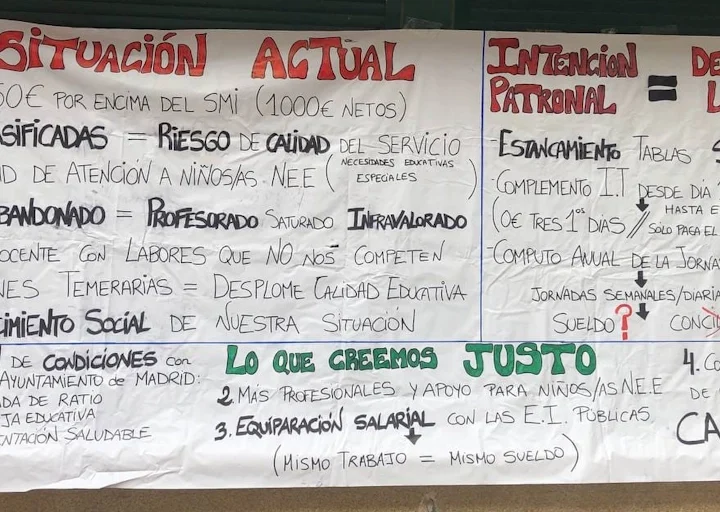 SITUACIÓN ACTUAL
50€ POR ENCIMA DEL SMI (1000€ NETOS)
SIFICADAS = RIESGO DE CALIDAD DEL SERVICIO
D DE ATENCIÓN A NIÑOS/AS NEE (NECESIDADES EDUCATIVAS ESPECIALES)
BANDONADO = PROFESORADO SATURADO INFRAVALORADO
OCENTE CON LABORES QUE NO NOS COMPETEN
NES TEMERARIAS = DESPLOME CALIDAD EDUCATIVA
CIMIENTO SOCIAL DE NUESTRA SITUACIÓN
INTENCION PATRONAL = DE
L
-ESTANCAMIENTO TABLAS
-COMPLEMENTO I.T DESDE DÍA
HASTA E
(0€ TRES 1ºs DÍAS // SOLO PAGA EL
-COMPUTO ANUAL DE LA JORNA
JORNADAS SEMANALES/DIARIA
SUELDO? CONCI
DE CONDICIONES con
AYUNTAMIENTO de MADRID:
DA DE RATIO
JA EDUCATIVA
ENTACIÓN SALUDABLE
LO QUE CREEMOS JUSTO
2. MÁS PROFESIONALES Y APOYO PARA NIÑOS/AS N.E.E
3. EQUIPARACIÓN SALARIAL CON LAS E.I. PÚBLICAS
(MISMO TRABAJO = MISMO SUELDO)
4. CO
DE
CA